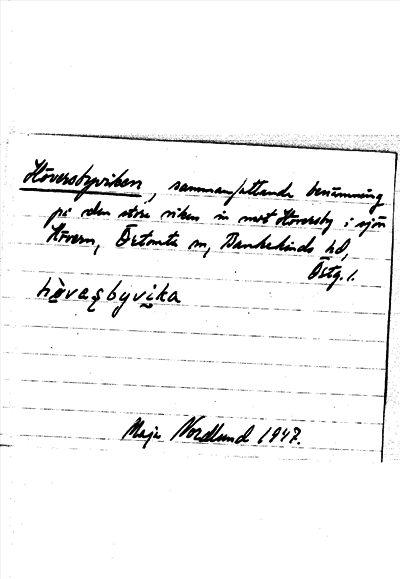 Höversbyviken, sammanfattande benämning
på den större viken in mot Höversby i sjön
Hövern, Örtomta sn, Bankekinds hd,
Östg. l.
hövaşbyvika
Maja Nordlund 1947.